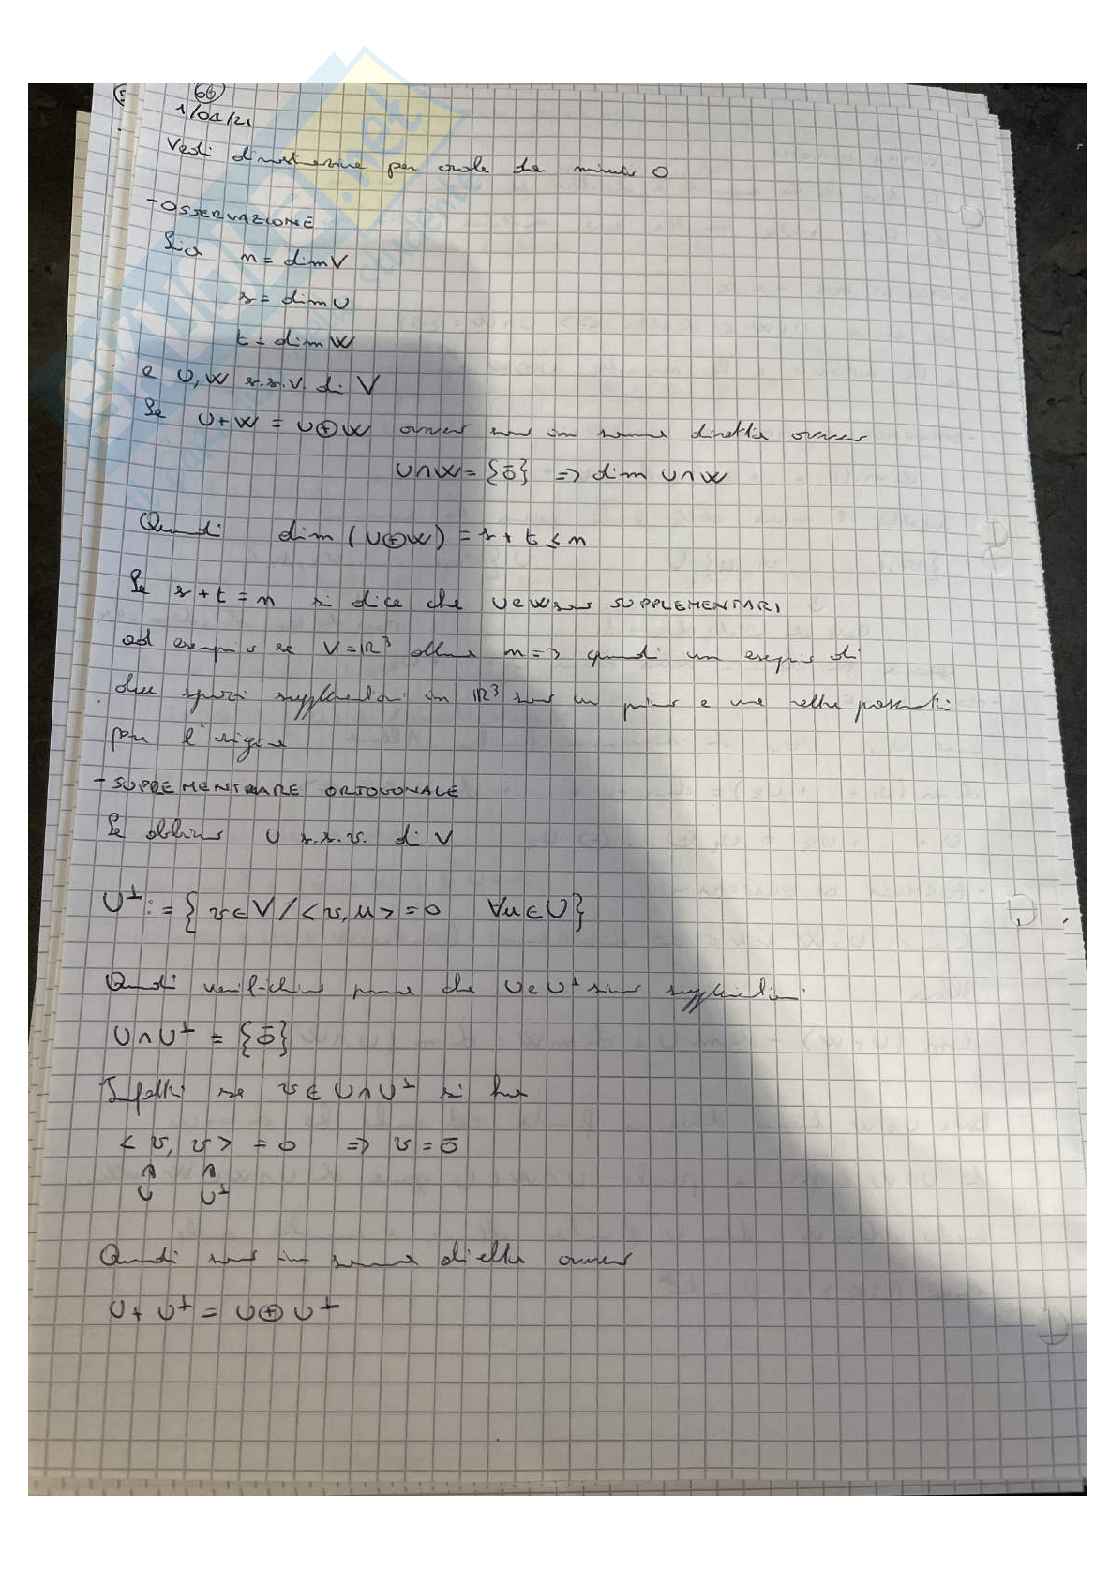 66
1/04/21
Vedi dimostrazione per orale da minuto 0
- OSSERVAZIONE
Sia n = dim V
r = dim U
t = dim W
e U, W s.s.v. di V
Se U+W = U⊕W ovvero sono in somma diretta ovvero
U∩W = {0̄} => dim U∩W
Quindi dim (U⊕W) = r + t ≤ n
Se r + t = n si dice che U e W sono SUPPLEMENTARI
ad esempio se V = ℝ³ allora n = 3 quindi un esempio di
due spazi supplementari in ℝ³ sono un piano e una retta passanti
per l'origine
- SUPPLEMENTARE ORTOGONALE
Se abbiamo U s.s.v. di V
U⊥ := { v ∈ V / < v, u > = 0 ∀u ∈ U }
Quindi verifichiamo prima che U e U⊥ siano supplementari
U ∩ U⊥ = {0̄}
Infatti se v ∈ U ∩ U⊥ si ha
< v, v > = 0 => v = 0̄
U U⊥
Quindi sono in somma diretta ovvero
U + U⊥ = U ⊕ U⊥